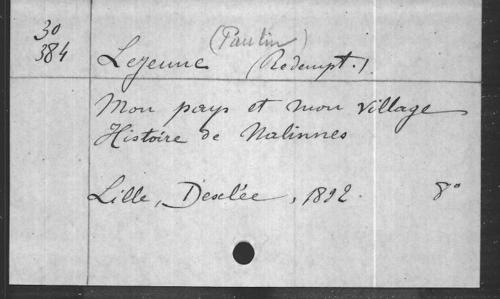 30
384
(Paulin)
Lejeune (Redempt.)
Mon pays et mon village
Histoire de Nalinnes
Lille, Desclée, 1892. 8°